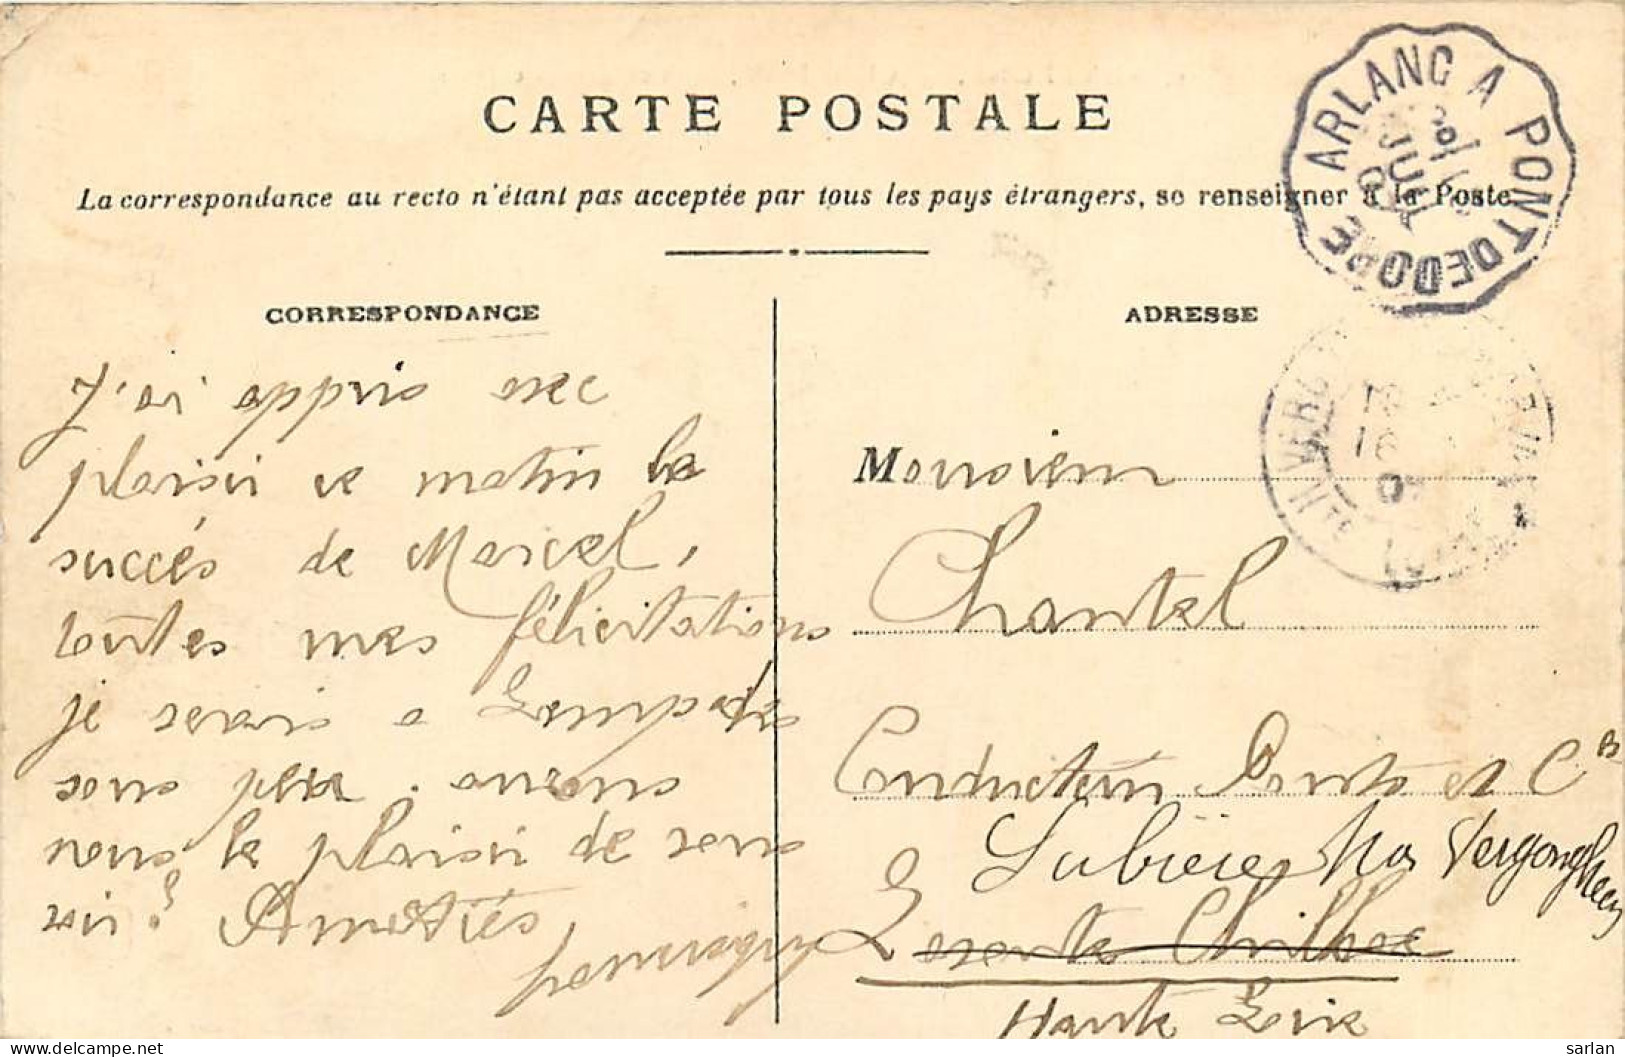 CARTE POSTALE
La correspondance au recto n'étant pas acceptée par tous les pays étrangers, se renseigner à la Poste
ARLANC A PONT DE DORE
JUIL
CORRESPONDANCE
J'ai appris avec
plaisir ce matin le
succés de Marcel,
toutes mes félicitations
je serais a Lempdes
sous peu. aurons
nous le plaisir de vous
voir? Amitiés
ADRESSE
Monsieur
Chantel
Conducteur Ponts et C
Lubière par Vergongheon
Lavoute Chilhac
Haute Loire
sarlan